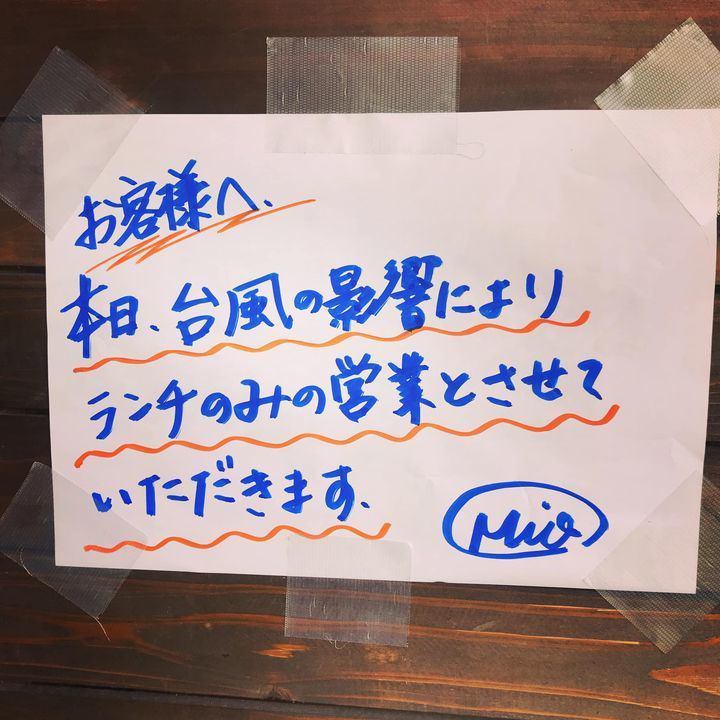 お客様へ.
本日、台風の影響により
ランチのみの営業とさせて
いただきます.
Mio